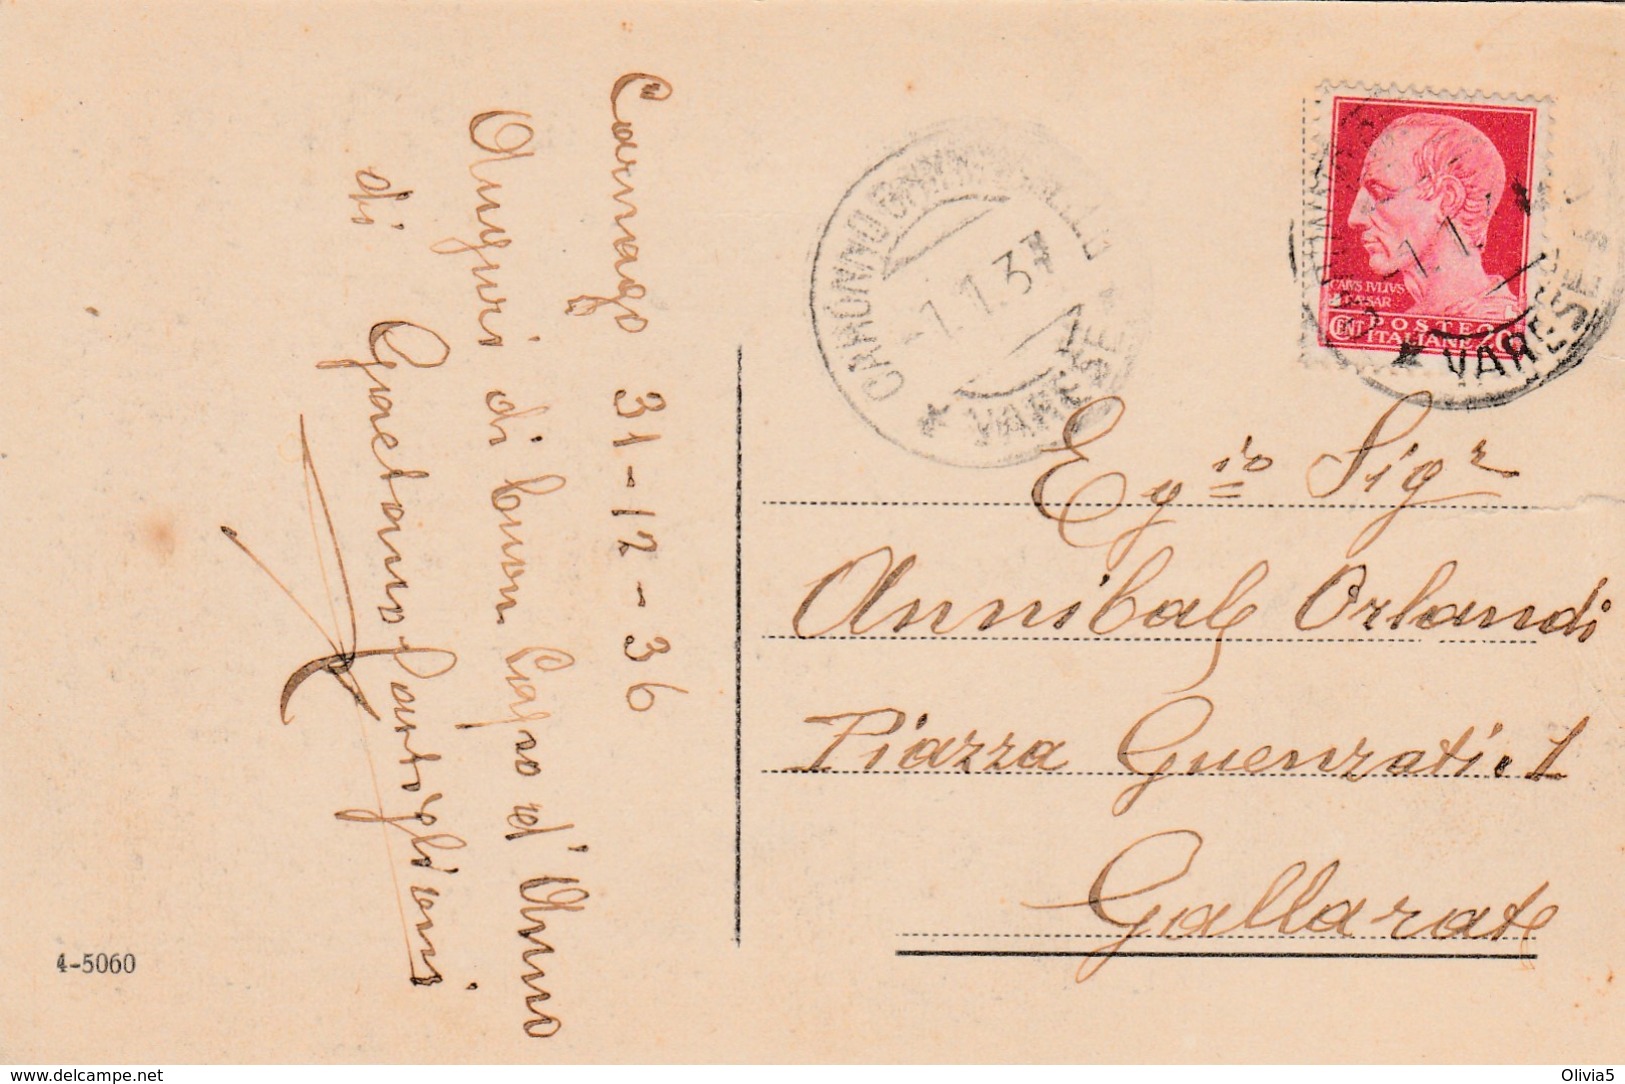 Carnago 31-12-36
Auguri di buon Capo d'Anno
di Gaetano Partiglioni
4-5060
CARONNO
VARESE
-1.1.37
CAIVS IVLIVS
CAESAR
POSTE
CENT ITALIANE 20
VARESE
-1.1.
Egio Sigr
Annibale Orlandi
Piazza Guenzati. 1
Gallarate
www.delcampe.net
Olivia5